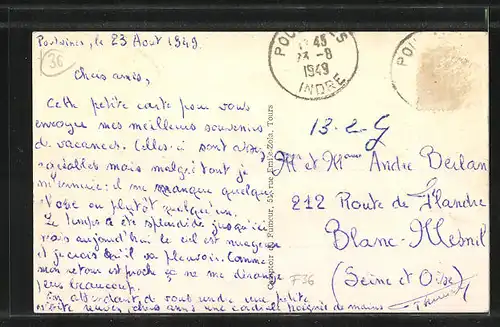 Poulaines, le 23 Août 1949.
36
Chers amis,
Cette petite carte pour vous
envoyer mes meilleurs souvenirs
de vacances. Celles-ci sont assez
agréables mais malgré tout je
m'ennuie : il me manque quelque
chose ou plutôt quelqu'un.
Le temps a été splendide jusqu'ici
mais aujourd'hui le ciel est nuageux
et je crois qu'il va pleuvoir. Comme
mon retour est proche ça ne me dérange
pas beaucoup.
En attendant de vous rendre une petite
visite recevez chers amis une cordiale poignée de mains
Comptoir du Fumeur, 55, rue Emile-Zola, Tours
INDRE
1949
23 - 8
13-2-G
Mr et Mme André Berlan
212 Route de Flandre
Blanc-Mesnil
(Seine et Oise)
F36